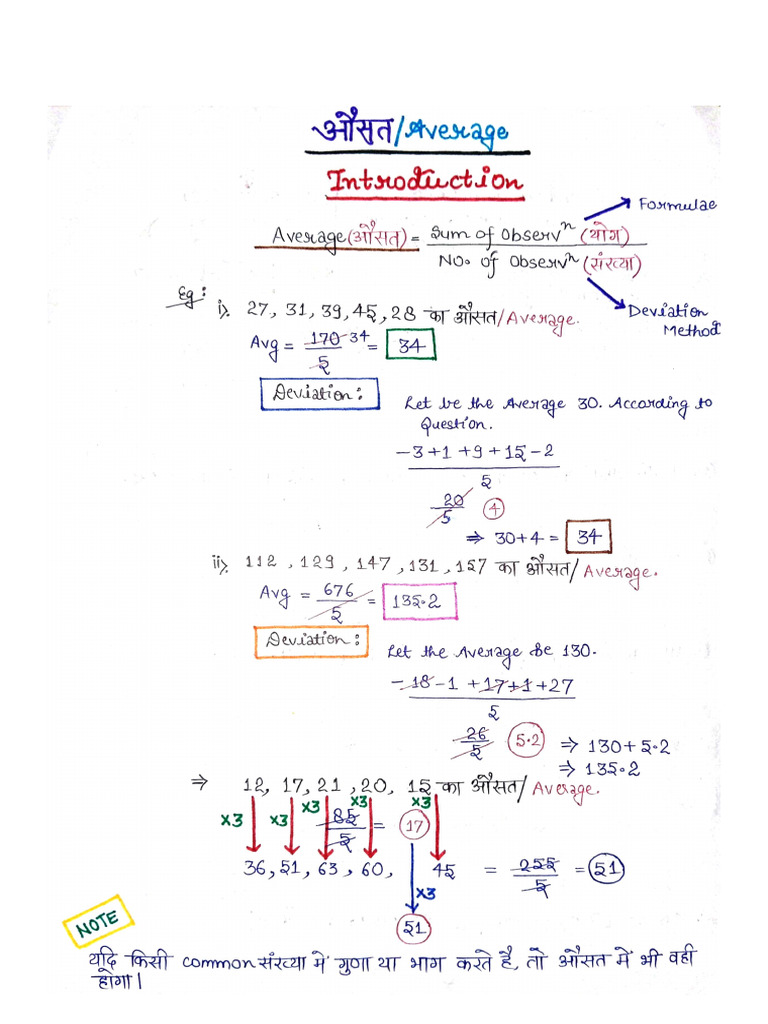 औसत/Average
Introduction
Formulae
Average(औसत) = Sum of Observⁿ (योग)
No. of Observⁿ (संख्या)
Eg:
i). 27, 31, 39, 45, 28 का औसत/Average.
Deviation Method
Avg = 170 34 = 34
5
Deviation:
Let be the Average 30. According to
Question.
-3+1+9+15-2
5
20 4
5
⇒ 30+4 = 34
ii). 112, 129, 147, 131, 157 का औसत/Average.
Avg = 676 = 135.2
5
Deviation:
Let the Average be 130.
-18-1+17+1+27
5
26 5.2 ⇒ 130+5.2
5 ⇒ 135.2
⇒ 12, 17, 21, 20, 15 का औसत/Average.
x3 x3 x3 x3 x3
85 = 17
5
36, 51, 63, 60, 45 = 255 = 51
5
x3
51
NOTE
यदि किसी common संख्या में गुणा या भाग करते है, तो औसत में भी वही
होगा।